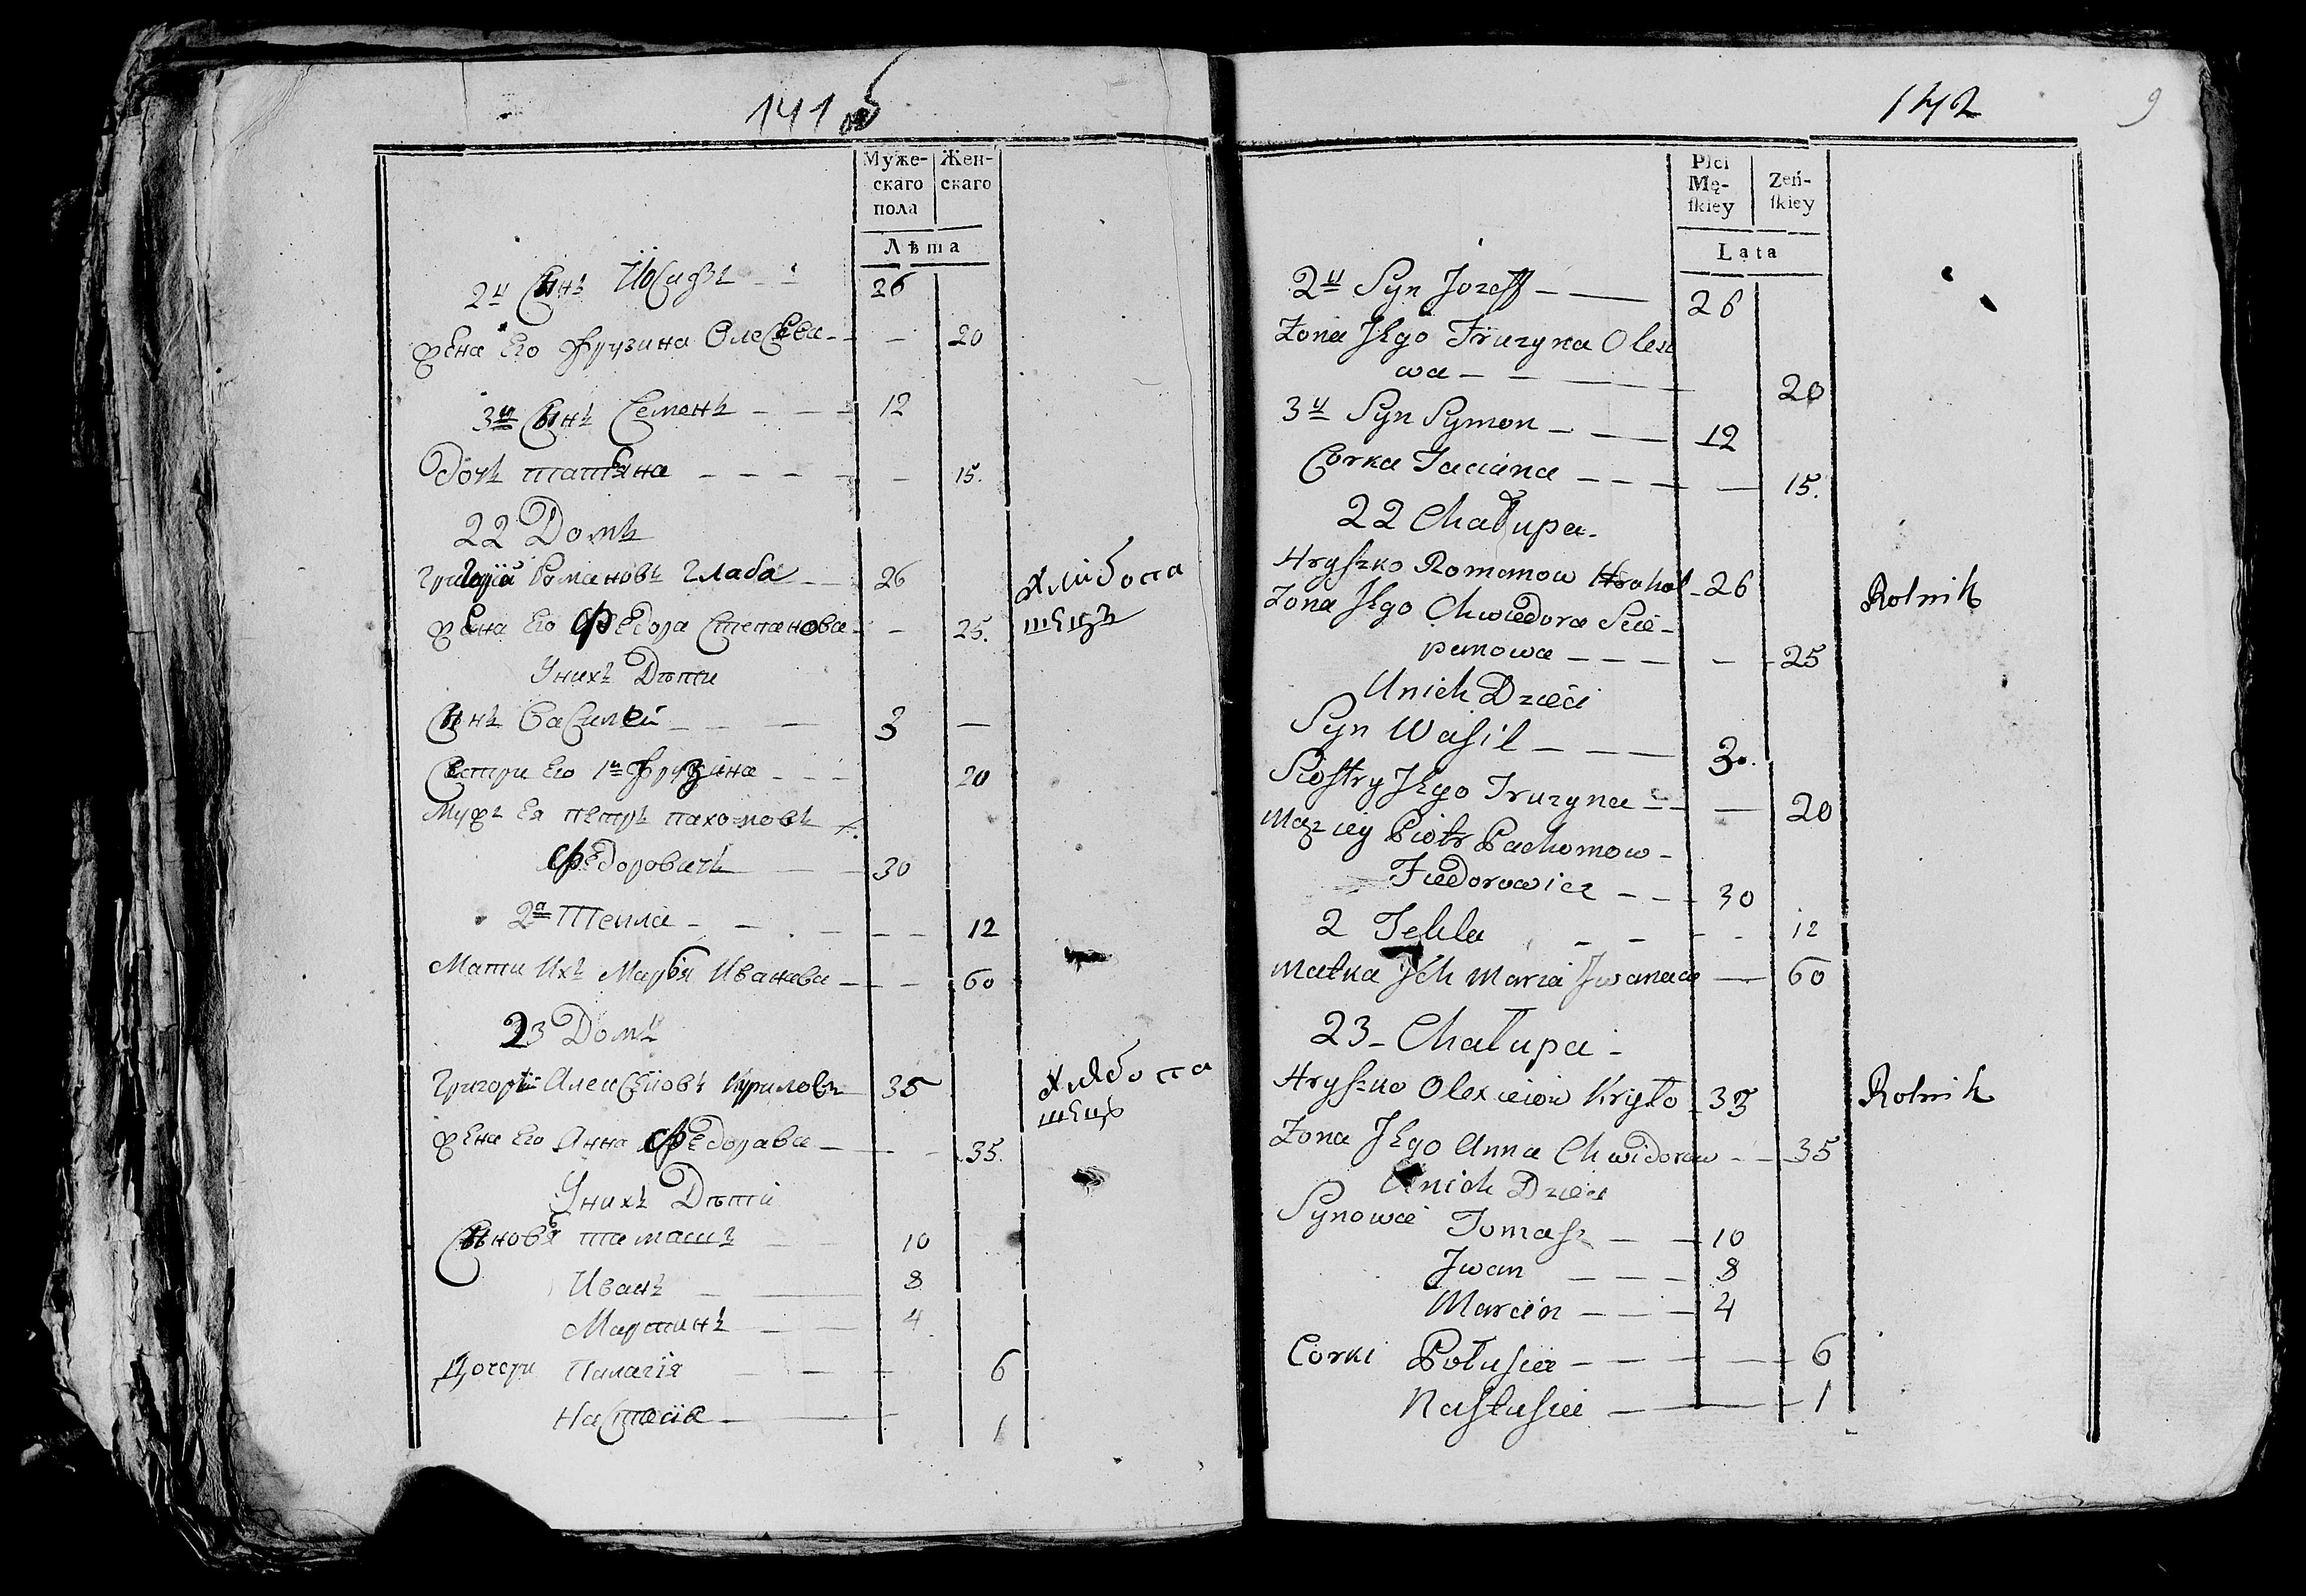 141 об
Муже-
скаго
пола
Жен-
скаго
Лѣта
2й Сынъ Иосифъ - - 26
жена Его Фрузина Олесева - - - 20
3й Сынъ Семенъ - - - 12
Дочь татяна - - - - - 15.
22 Домъ
Григорій Романовъ Глаба - - 26 Хлибопа
жена Его Федора Степанова - - 25. шецъ
Унихъ Дѣти
Сынъ Василей - - - 3 —
Сестри Его 1я Фрузина - - - 20
Мужъ Ея петръ пахомовъ
Федоровичъ - - - 30
2а Текла - - - - - - 12
Мати Ихъ Маръя Иванава - - - 60
23 Домъ
Григорій Алексѣиовъ Куриловъ 35 Хлѣбопа
шецъ
жена Его Анна Федорава - - - 35.
Унихъ Дѣти
Сыновя тамашъ - - 10
Иванъ - — 8
Мартинъ - - 4
Дочери Палагія - - - 6
Настасія - - - 1
142
9
Płci
Mę-
ſkiey
Zeń-
ſkiey
Lata
2й Syn Jozeff - — 26
Zona Jego Fruzyna Olexe
wa - - — 20
3й Syn Symon - — 12
Corka Taciana - - - — 15.
22 Chałupa -
Hryſzko Romanow Hrohol - 26 Rolnik
Zona Jego Chwiedora Scie-
panowa - - - - 25
Unich Dzieci
Syn Waſil - - — 3.
Sioſtry Jego Fruzyna - - — 20
Mąz iey Piotr Pachomow -
Fiedorowicz - - - 30
2 Tekla - - - - 12
Matka Ich Maria Jwanawa — 60
23 - Chałupa -
Hryſzko Olexieiow Kryło 33 Rolnik
Zona Jego Anna Chwidorow - - 35
Unich Dzieci
Synowie Tomaſz - - 10
Jwan - - - 8
Marcin - - - 4
Corki Połuſia - - - — 6
Naſtuſia — — 1